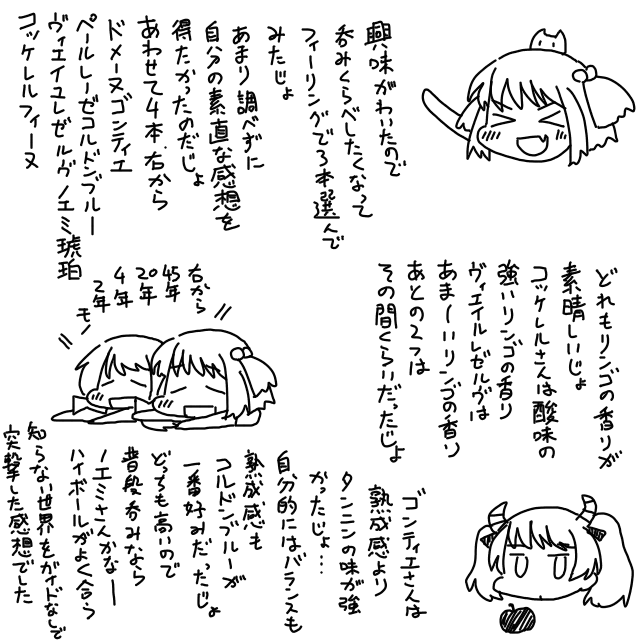 興味がわいたので
呑みくらべしたくなって
フィーリングで3本選んで
みたじょ
あまり調べずに
自分の素直な感想を
得たかったのだじょ
あわせて4本.右から
ドメーヌゴンティエ
ペールレーゼコルドンブルー
ヴィエイユレゼルヴノエミ琥珀
コッケレルフィーヌ
どれもリンゴの香りが
素晴しいじょ
コッケレルさんは酸味の
強いリンゴの香り
ヴィエイルレゼルヴは
あまーいリンゴの香り
あとの2つは
その間くらいだったじょ
右から
45年
20年
4年
2年
モノ
ゴンティエさんは
熟成感より
タンニンの味が強
かったじょ…
自分的にはバランスも
熟成感も
コルドンブルーが
一番好みだったじょ
どっちも高いので
普段呑みなら
ノエミさんかなー
ハイボールがよく合う
知らない世界をガイドなしで
突撃した感想でした